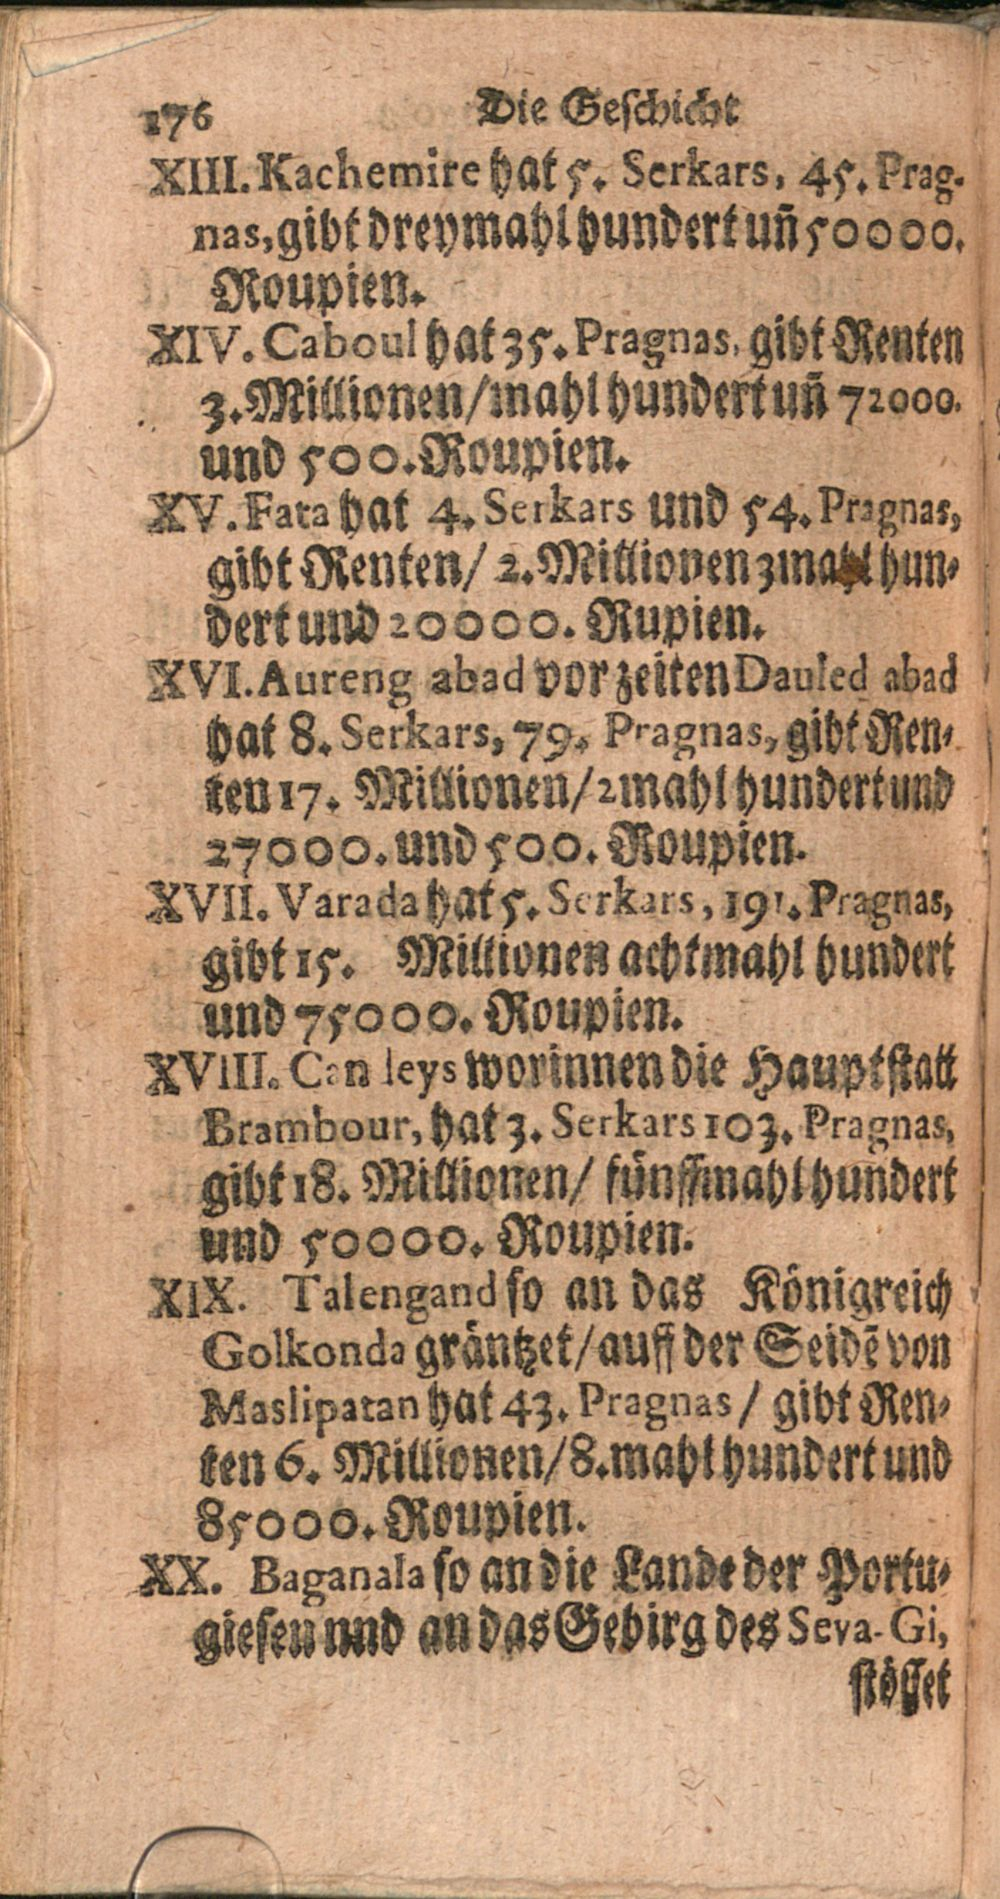 176 Die Geschicht
XIII. Kachemire hat 5. Serkars, 45. Prag-
nas, gibt dreymahl hundert uñ 50000.
Roupien.
XIV. Caboul hat 35. Pragnas, gibt Renten
3. Millionen/mahl hundert uñ 72000.
und 500. Roupien.
XV. Fata hat 4. Serkars und 54. Pragnas,
gibt Renten/ 2. Millionen 3mahl hun-
dert und 20000. Rupien.
XVI. Aureng abad vor zeiten Dauled abad
hat 8. Serkars, 79. Pragnas, gibt Ren-
ten 17. Millionen/2mahl hundert und
27000. und 500. Roupien.
XVII. Varada hat 5. Serkars, 191. Pragnas,
gibt 15. Millionen achtmahl hundert
und 75000. Roupien.
XVIII. Can leys worinnen die Hauptstatt
Brambour, hat 3. Serkars 103. Pragnas,
gibt 18. Millionen/ fünffmahl hundert
und 50000. Roupien.
XIX. Talengand so an das Königreich
Golkonda gräntzet/auff der Seidē von
Maslipatan hat 43. Pragnas / gibt Ren-
ten 6. Millionen/8.mahl hundert und
85000. Roupien.
XX. Baganala so an die Lande der Portu-
giesen nnd an das Gebirg des Seva-Gi,
stösset